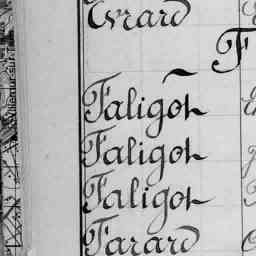 Evrard
F
Faligot
Faligot
Faligot
Farard